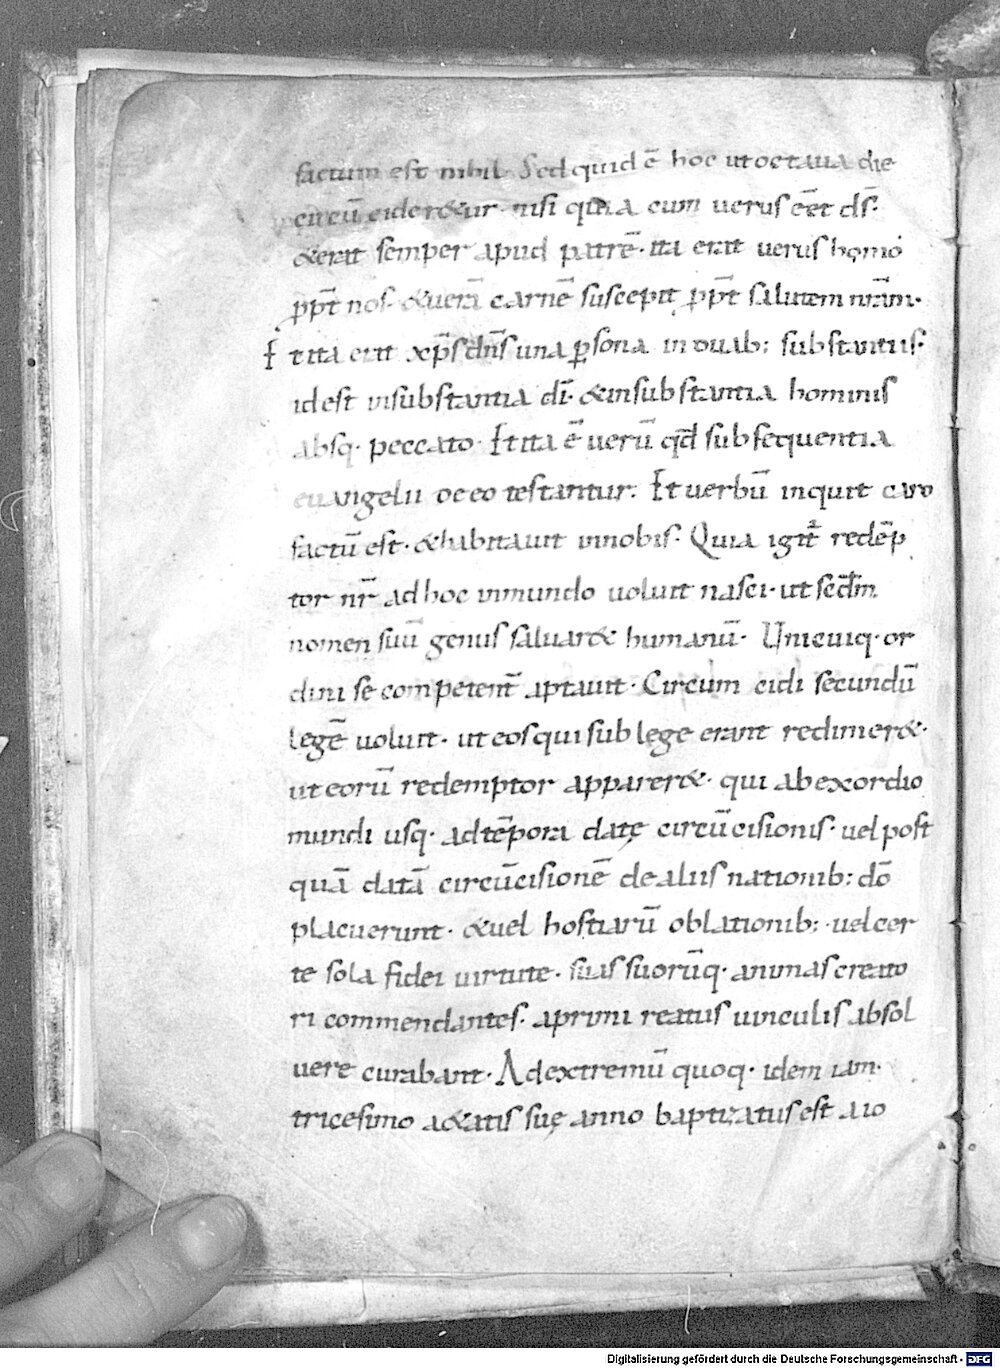 factum est nihil. Sed quid ē hoc ut octaua die
circū cideretur. nisi quia cum uerus eēt ds̄.
&erat semper apud patrē. ita erat uerus homo
ꝓpt̄ nos. &uerā carnē suscepit ꝓpt̄ salutem nrām.
Et ita erat xp̄s dn̄s una ꝑsona in duab; substantiis.
idest insubstantia dī. &insubstantia hominis
absq. peccato. Et ita ē uerū qd̄ subsequentia
euangelii oc eo testantur. Et uerbū inquit caro
factū est. &habitauit innobis. Quia igit̄ redēp
tor nr̄ ad hoc inmundo uoluit nasci. ut secd̄m
nomen suū genus saluar& humanū. Unicuiq. or
dini se competent̄ aptauit. Circum cidi secundū
legē uoluit. ut eos qui sub lege erant redimer&.
ut eorū redemptor apparer&. qui ab exordio
mundi usq. ad tēpora datę circūcisionis. uel post
quā datā circūcisionē de aliis nationib; dō
placuerunt. &uel hostiarū oblationib; uel cer
te sola fidei uirtute. suas suorūq. animas creato
ri commendantes. a primi reatus uinculis absol
uere curabant. Ad extremū quoq. idem iam.
tricesimo a&atis suę anno baptizatus est a io
Digitalisierung gefördert durch die Deutsche Forschungsgemeinschaft - DFG